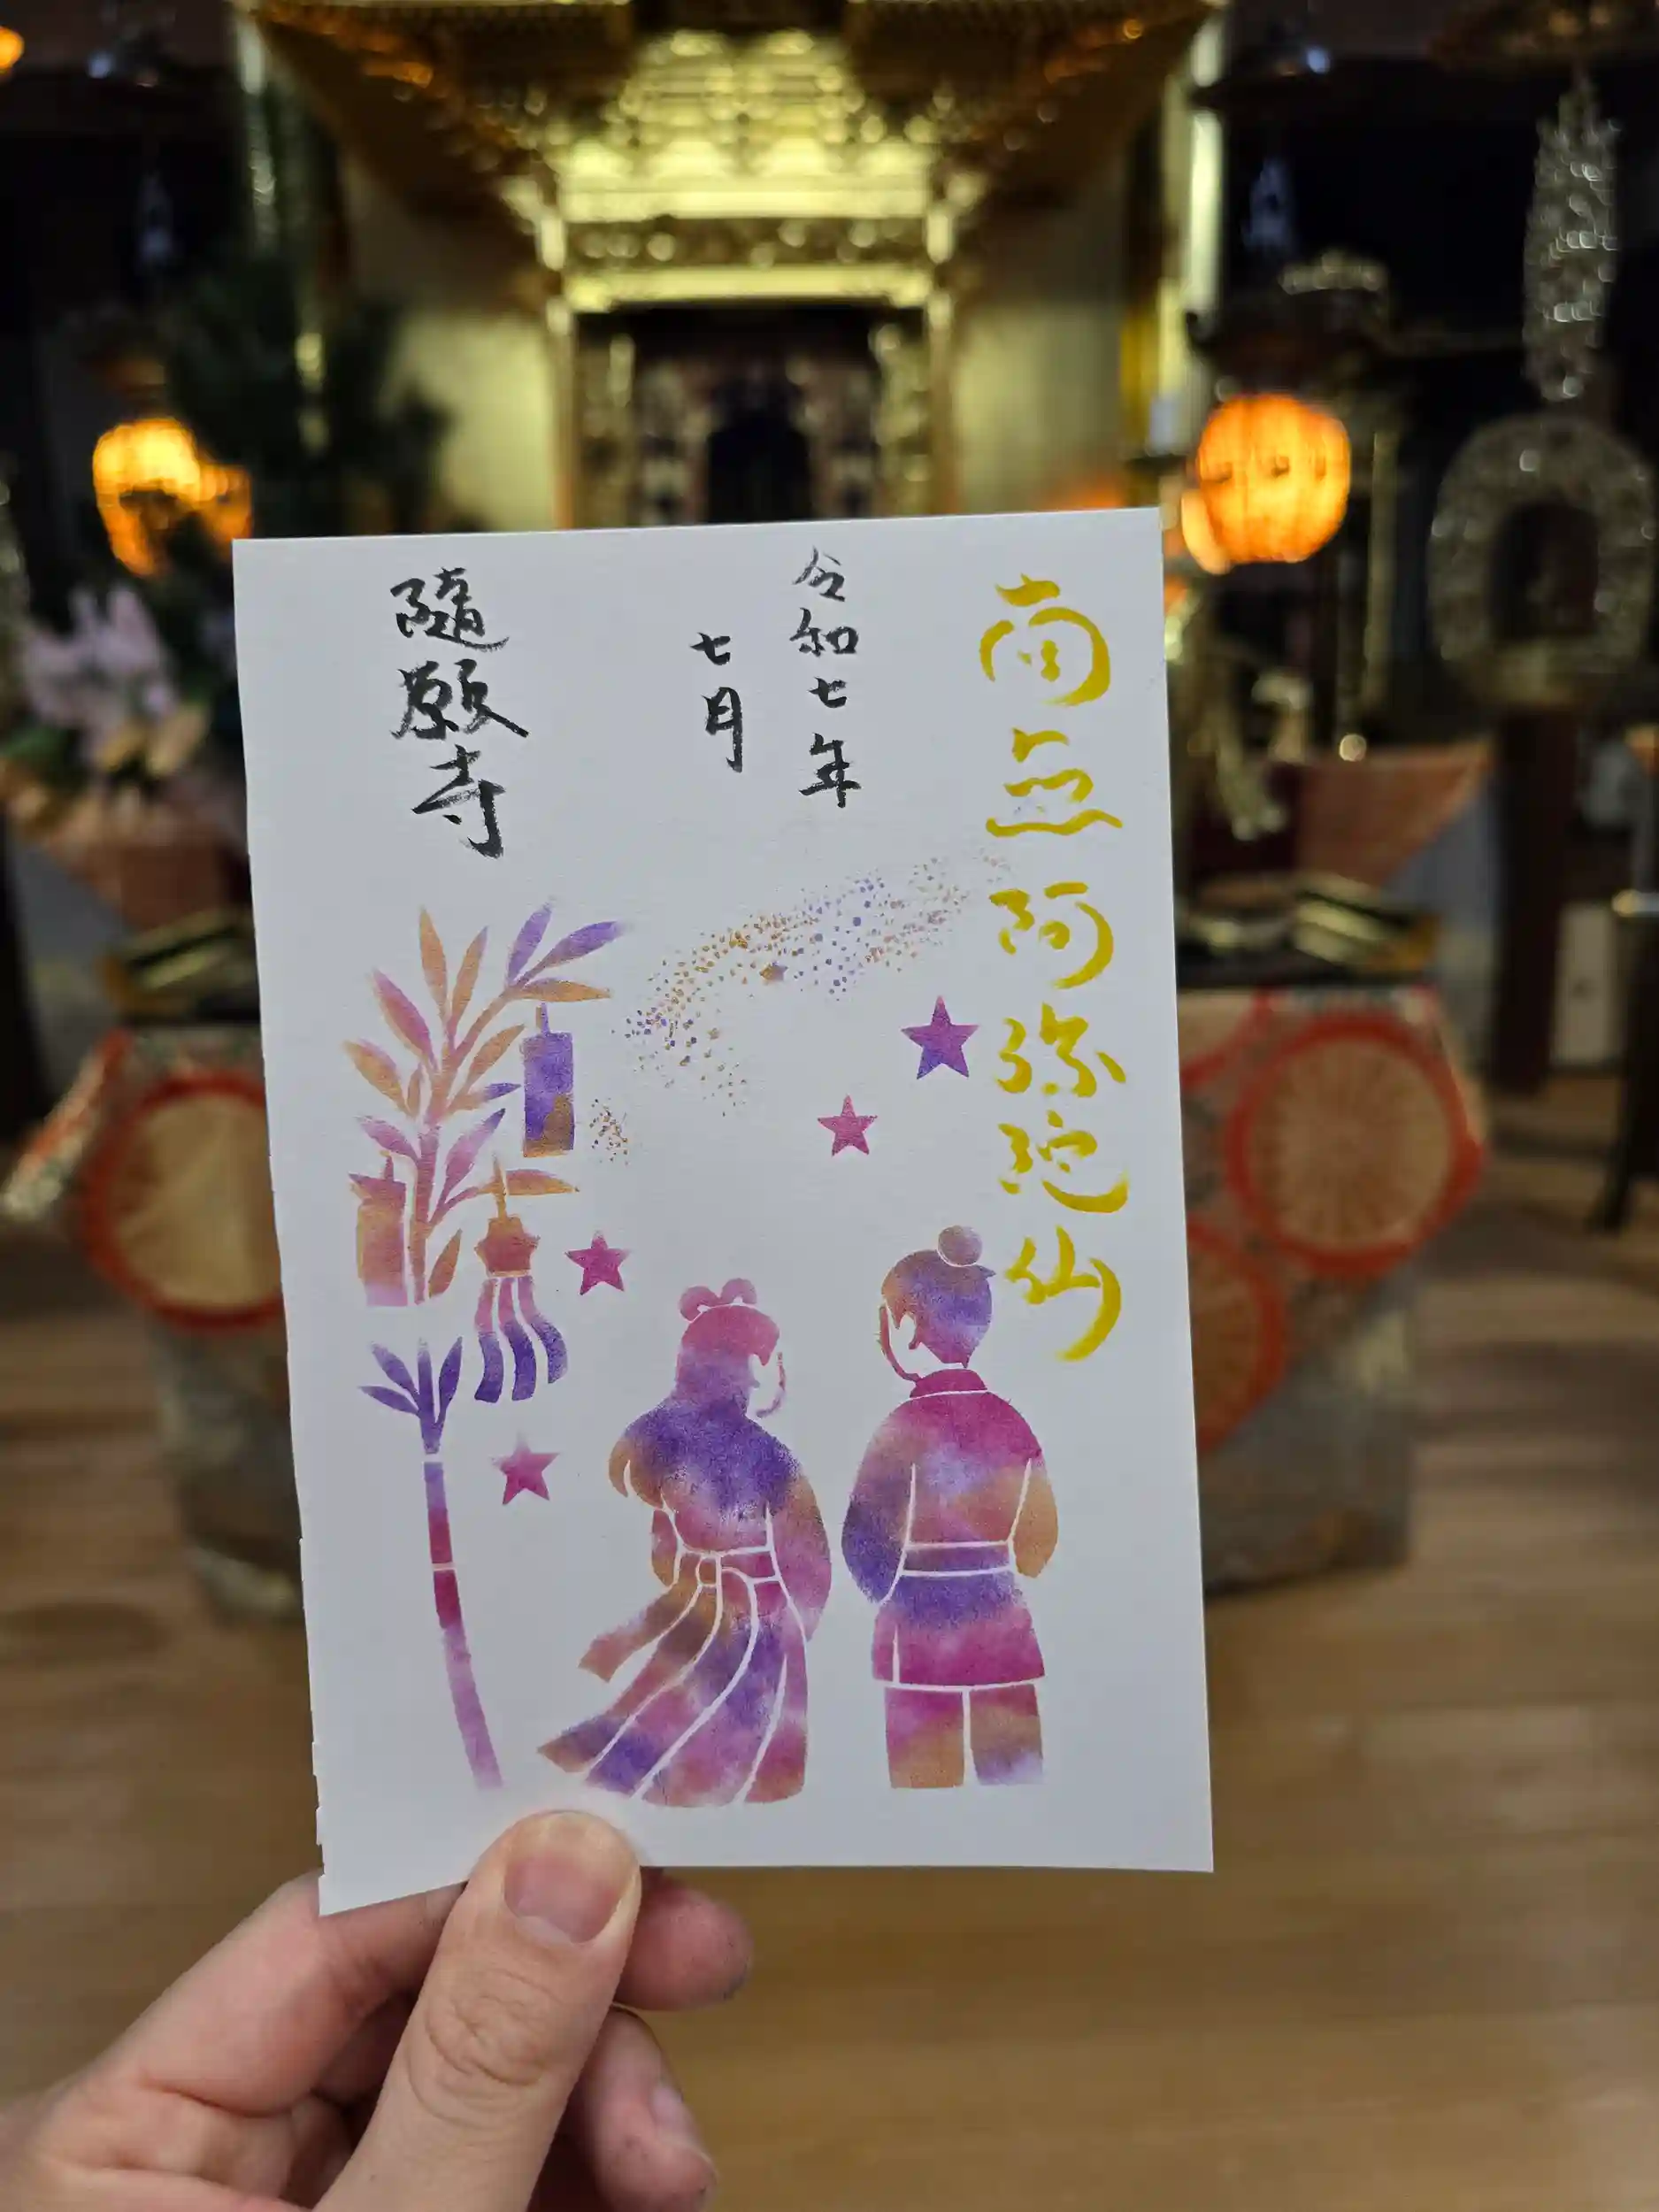 南無阿弥陀仏
令和七年
七月
隨願寺